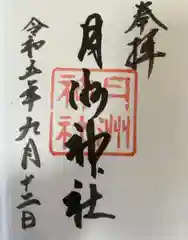 奉拝
月洲神社
月洲神社
令和五年九月十二日